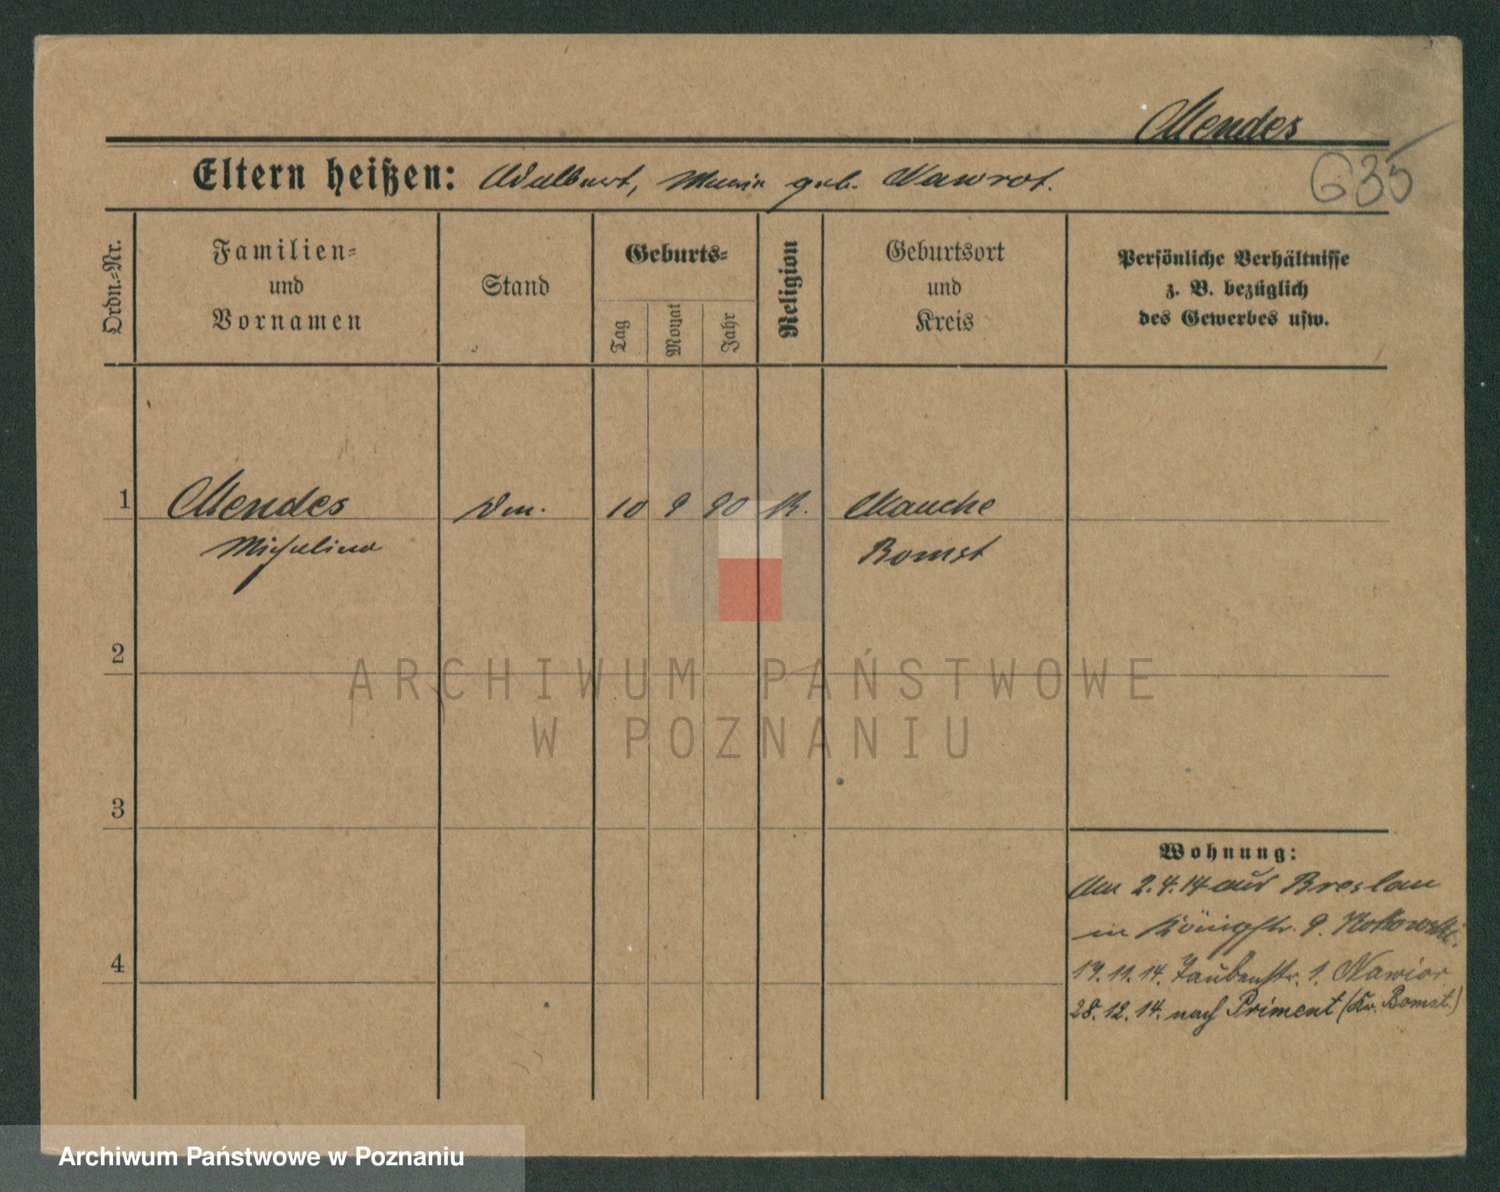 Mendes
635
Eltern heißen: Adalbert, Maria geb. Nawrot.
Ordn.-Nr.
Familien-
und
Vornamen
Stand
Geburts-
Tag
Monat
Jahr
Religion
Geburtsort
und
Kreis
Persönliche Verhältnisse
z. B. bezüglich
des Gewerbes usw.
1 Mendes 10 9 90 K. Mauche
Michalina Bomst
2
3
4
Wohnung:
Am 2.4.14 aus Breslau
in Königstr. 9.
17.11.14. Taubenstr. 1. Nawior
28.12.14. nach Priment (Kr. Bomst.)
ARCHIWUM PAŃSTWOWE
W POZNANIU
Archiwum Państwowe w Poznaniu